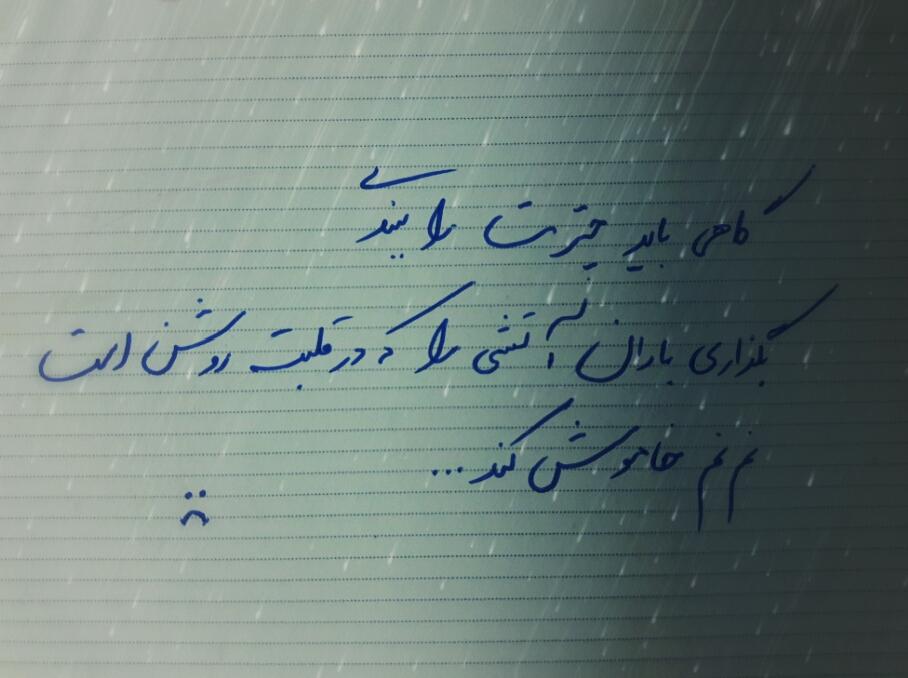 گاهی باید چترت را ببندی
بگذاری باران آتشی را که در قلبت روشن است
نم نم خاموش کند...